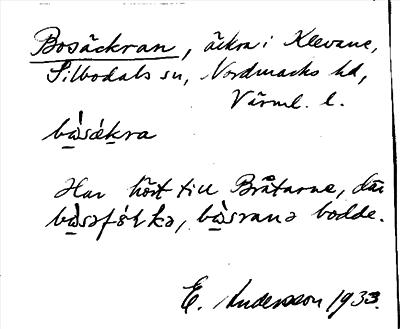 Bosäckran, åkra i Klevane,
Silbodals sn, Nordmarks hd,
Värml. l.
bὰ̱sǽḵra
Har hört till Bråtarne, där
bὰ̱səfɔ́lkə, bὰ̱sranə bodde.
E. Andersson 1933.